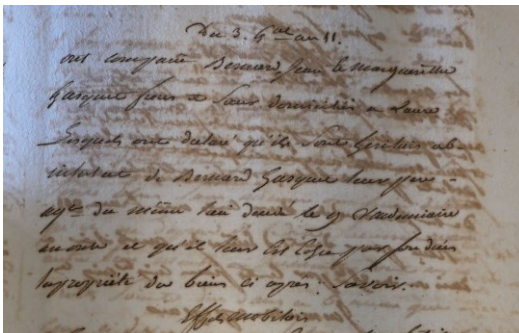 Du 3. G.al an 11.
ont comparu Bernard, Jean et marguerithe
Gasquet freres et sœur domiciliés a
Lesquels ont declaré qu'ils sont heritiers ab
intestat de Bernard Gasquet leur pere
agt. du même lieu decedé le 9 Vendemiaire
an onze et qu'il leur est echu par son décès
la propriété des biens ci apres: Savoir.
Effets mobiliers